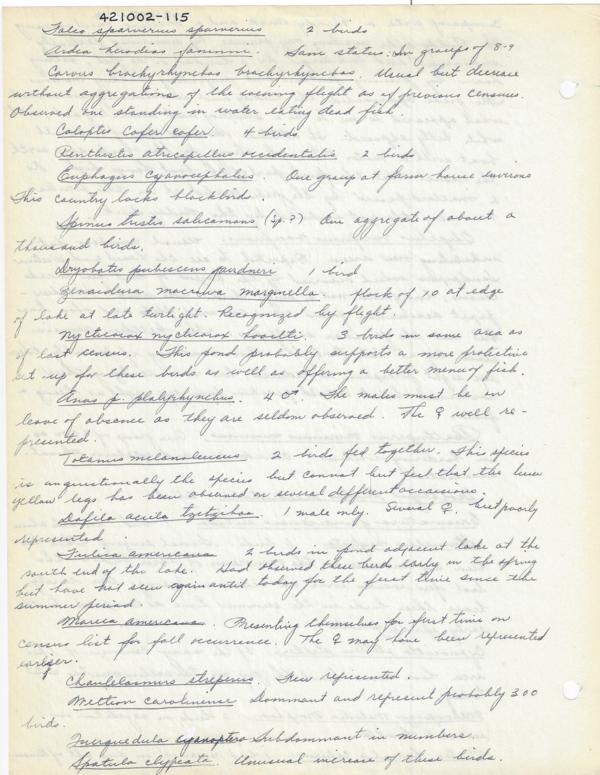 421002-115
Falco sparverius sparverius 2 birds
Ardea herodias Same status: In groups of 8-9
Corvus brachyrhynchos brachyrhynchos. Usual but decrease
without aggregations of the evening flight as of previous census.
Observed one standing in water eating dead fish.
Colaptes cafer cafer. 4 birds
Penthestes atricapillus occidentalis 2 birds
Euphagus cyanocephalus. One group at farm house environs
This country lacks blackbirds.
Spinus tristis salicamans (sp.?) One aggregate of about a
thousand birds.
Dryobates pubescens gairdneri 1 bird
Zenaidura macroura marginella. flock of 10 at edge
of lake at late twilight. Recognized by flight.
Nycticorax nycticorax hoactli. 3 birds in same area as
of last census. This pond probably supports a more protective
set-up for these birds as well as offering a better menu of fish.
Anas p. platyrhynchus. 4 ♂. The males must be on
leave of absence as they are seldom observed. The ♀ well re-
presented.
Totanus melanoleucus 2 birds fed together. This species
is unquestionally the species but cannot but feel that the lesser
yellow legs has been observed on several different occasions.
Dafila acuta tzitzihoa. 1 male only. Several ♀, but poorly
represented.
Fulica americana 2 birds in pond adjacent lake at the
south end of the lake. Had observed these birds early in the spring
but have not seen again until today for the first time since the
summer period.
Mareca americana. Presenting themselves for first time on
census list for fall occurrence. The ♀ may have been represented
earlier.
Chaulelasmus streperus. Few represented.
Nettion carolinense Dominant and represent probably 300
birds.
Querquedula cyanoptera Subdominant in numbers.
Spatula clypeata. Unusual increase of these birds.